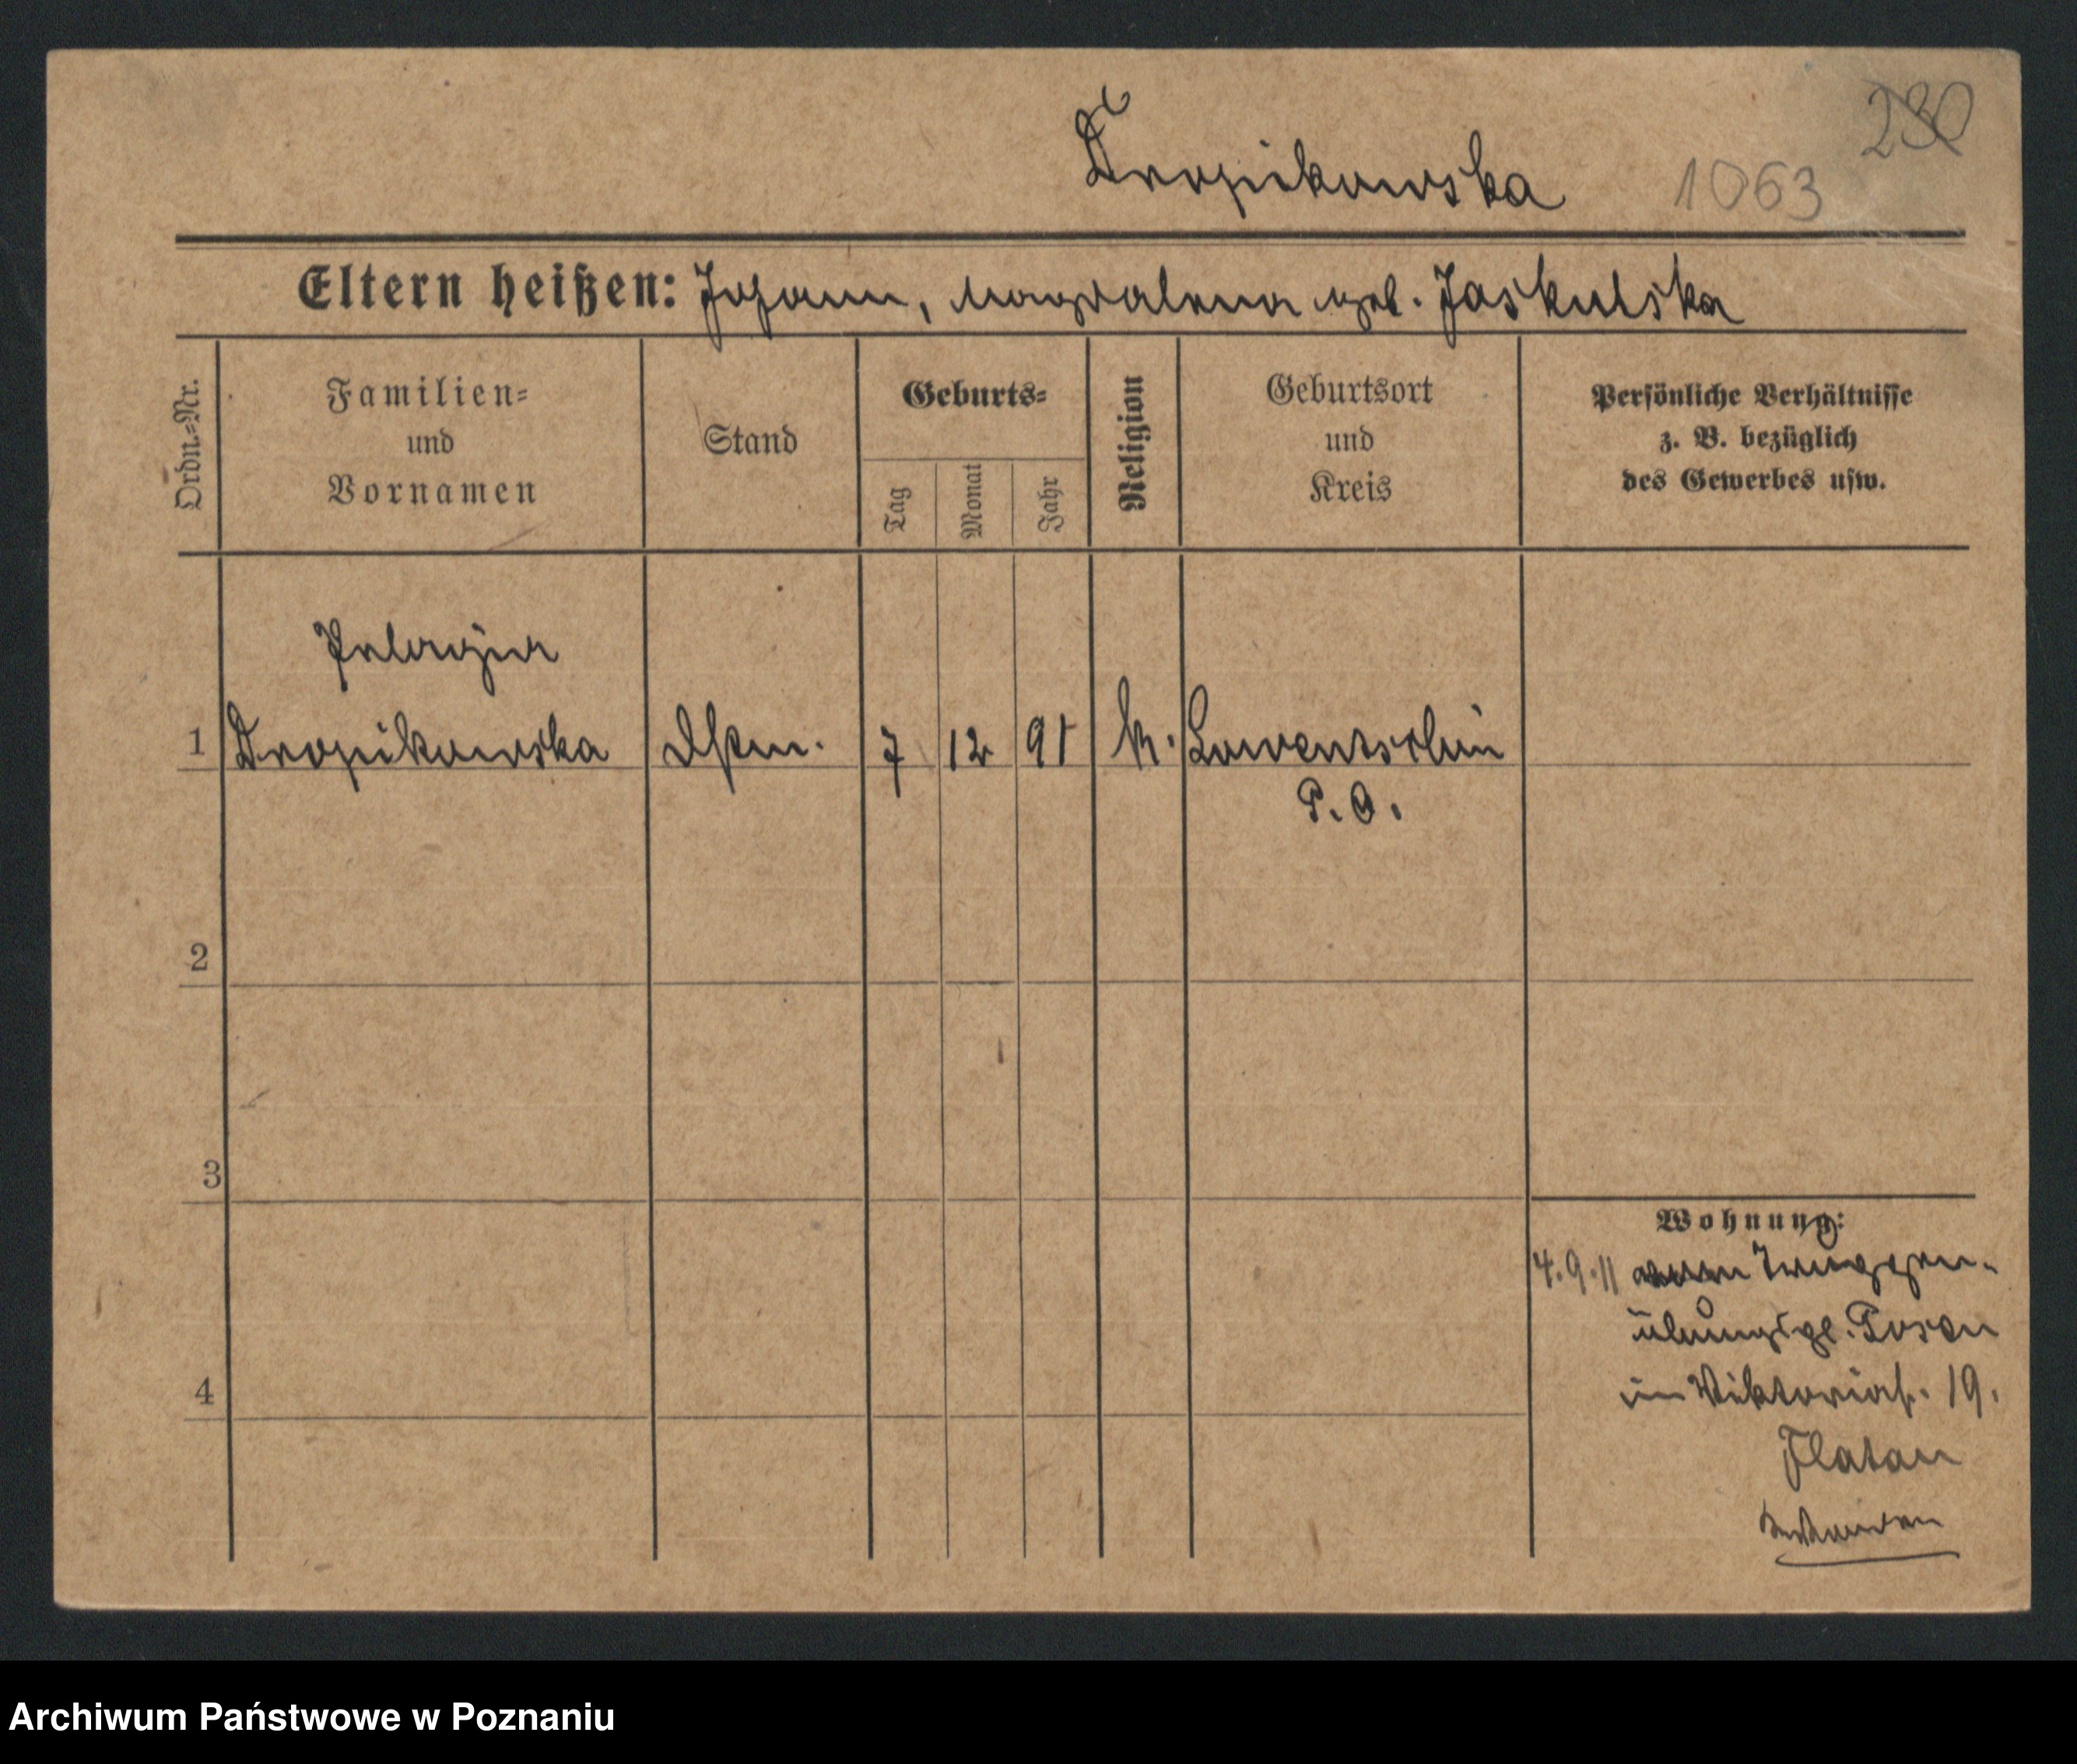 230
Dropikowska 1063
Eltern heißen: Johann, Magdalena geb. Jaskulska
Ordn.-Nr.
Familien-
und
Vornamen
Stand
Geburts-
Tag
Monat
Jahr
Religion
Geburtsort
und
Kreis
Persönliche Verhältnisse
z. B. bezüglich
des Gewerbes usw.
Pelagia
1 Dropikowska 7 12 91 k. Lawentschin
P. O.
2
3
4
Wohnung:
4.9.11 Truppen-
übungspl. Posen
in Viktoriastr. 19.
Flatau
Archiwum Państwowe w Poznaniu